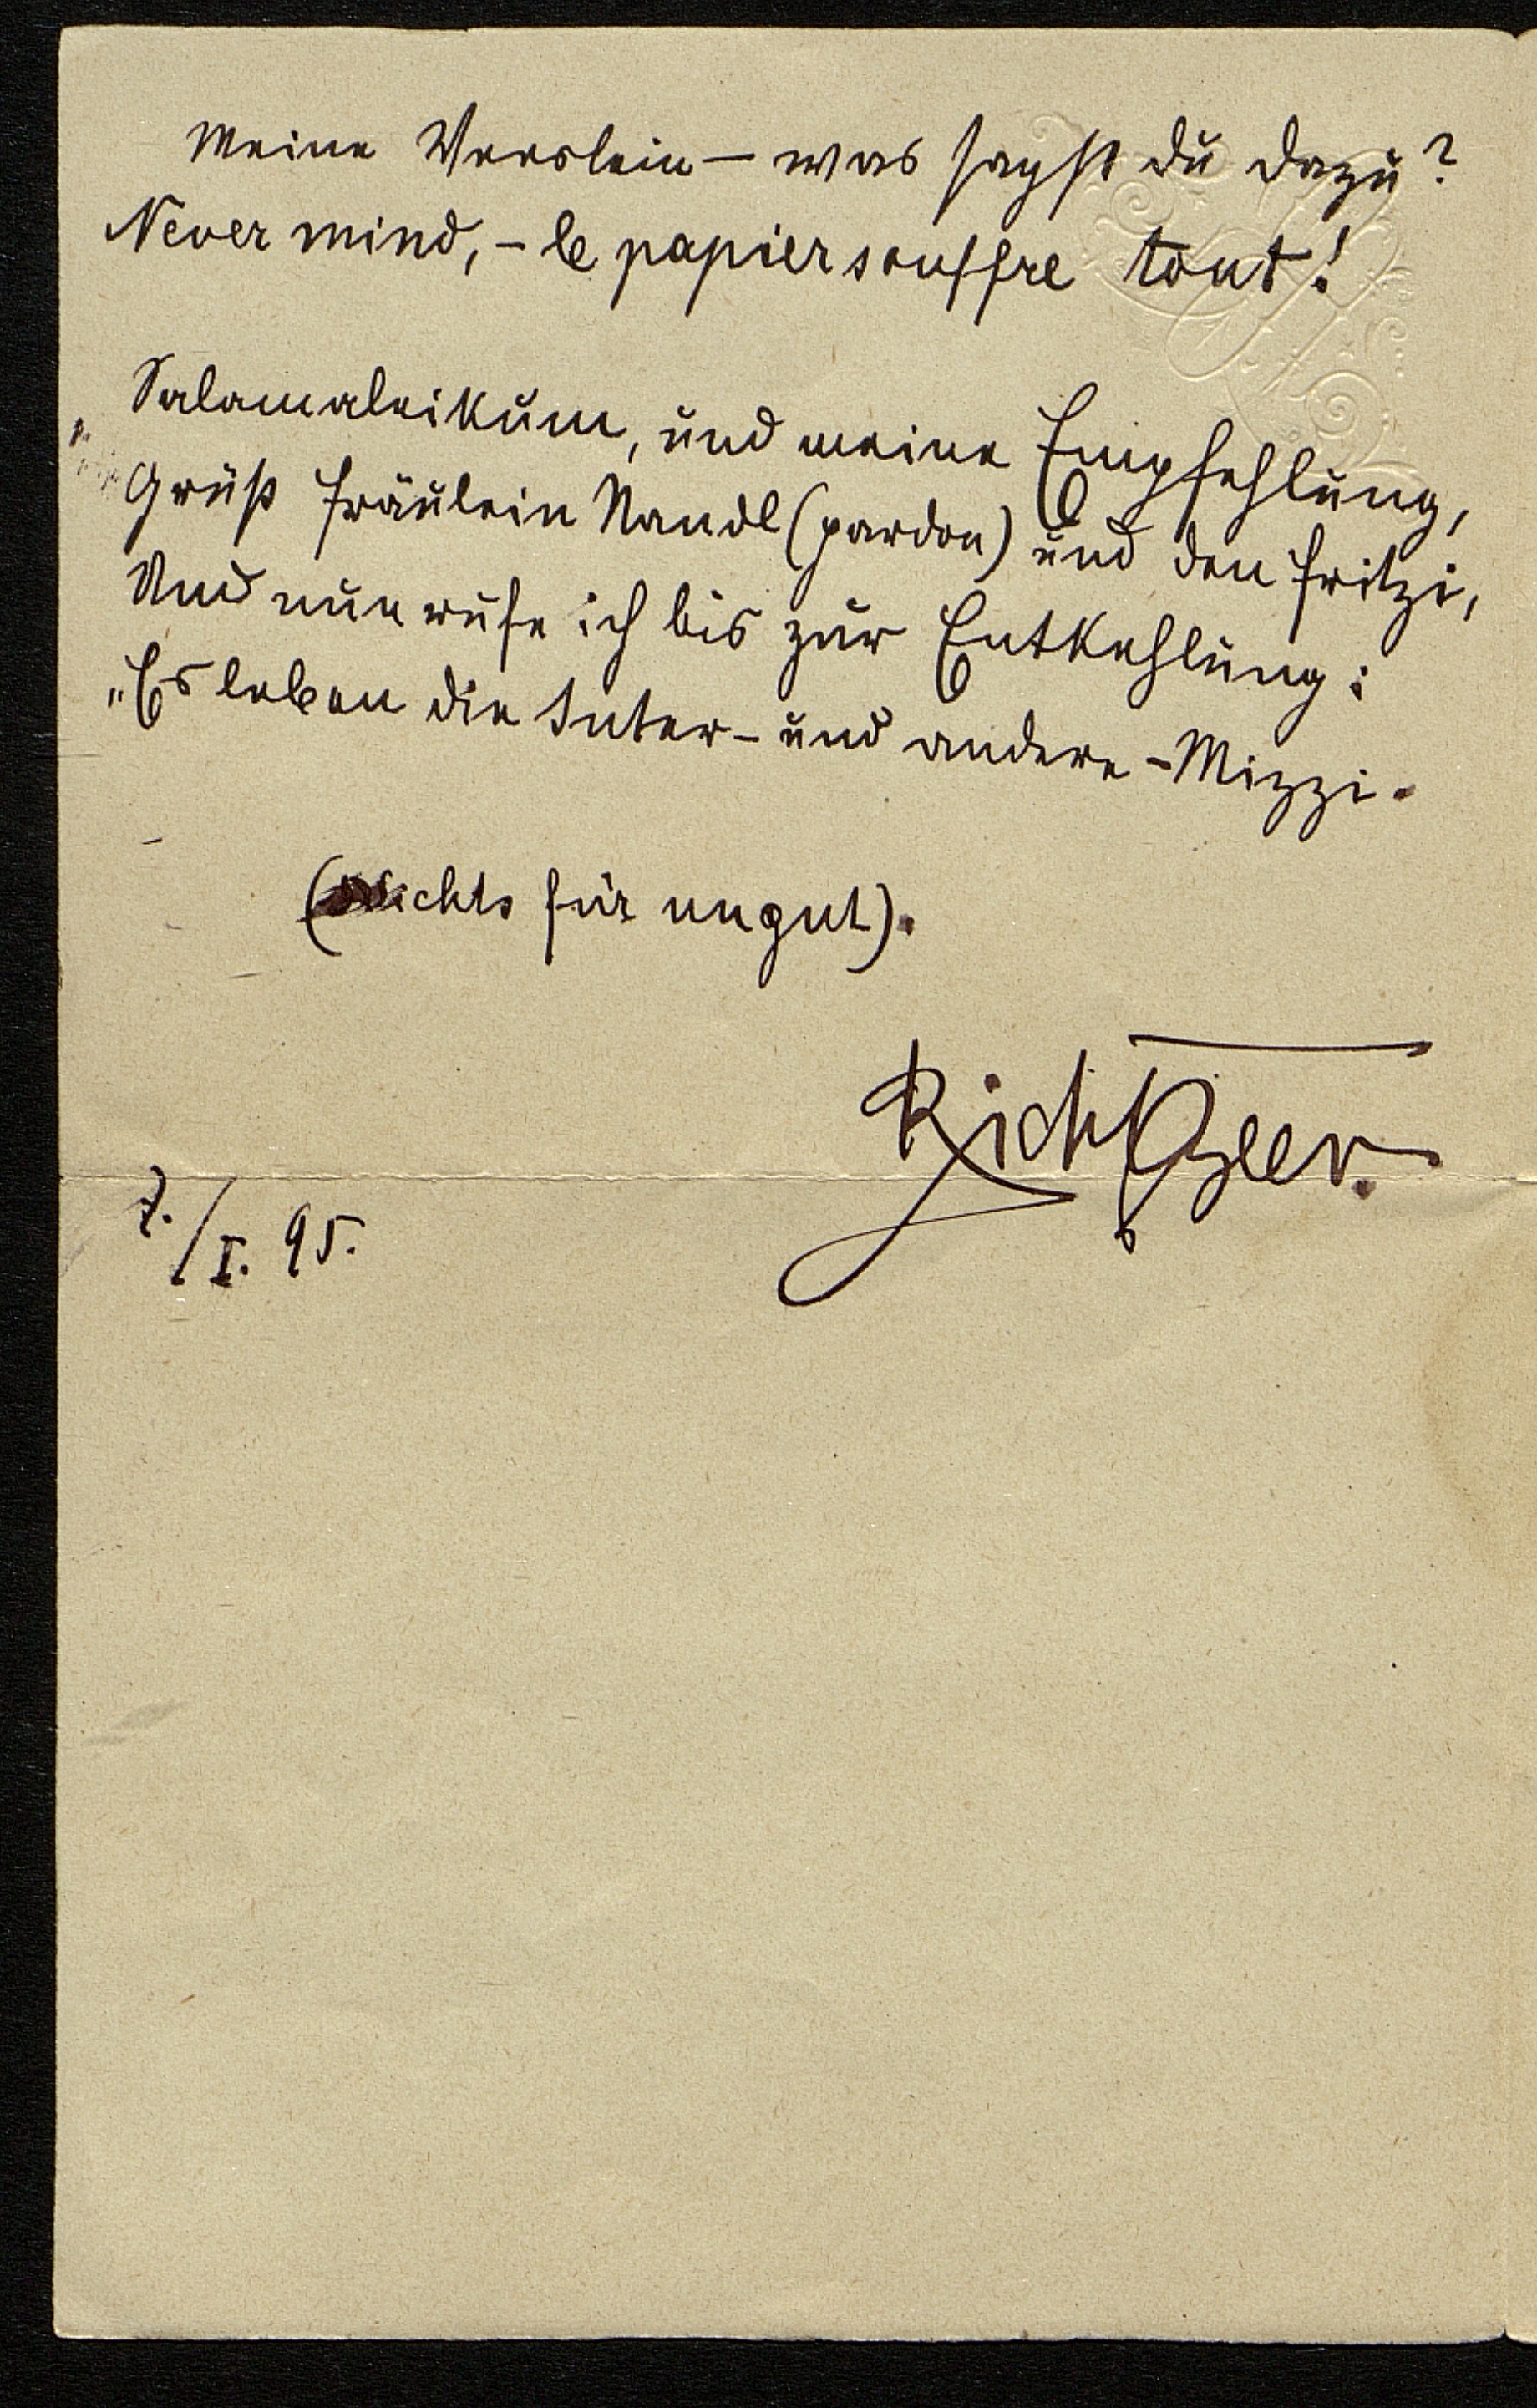 Meine Verslein – was sagst du dazu?
Never mind, – le papier souffre tout!
Salamaleikum, und meine Empfehlung,
Grüß Fräulein Nandl (pardon) und den Fritzi,
Und nun rufe ich bis zur Entkehlung:
„Es leben die Inter- und andere - Mizzi.
(Nichts für ungut).
Rich Beer.
7./I. 95.